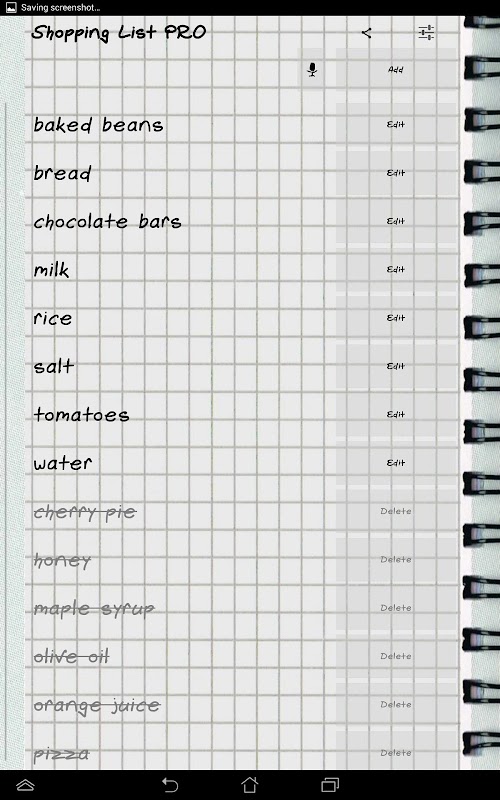 Saving screenshot...
Shopping List PRO
Add
baked beans Edit
bread Edit
chocolate bars Edit
milk Edit
rice Edit
salt Edit
tomatoes Edit
water Edit
cherry pie Delete
honey Delete
maple syrup Delete
olive oil Delete
orange juice Delete
pizza Delete